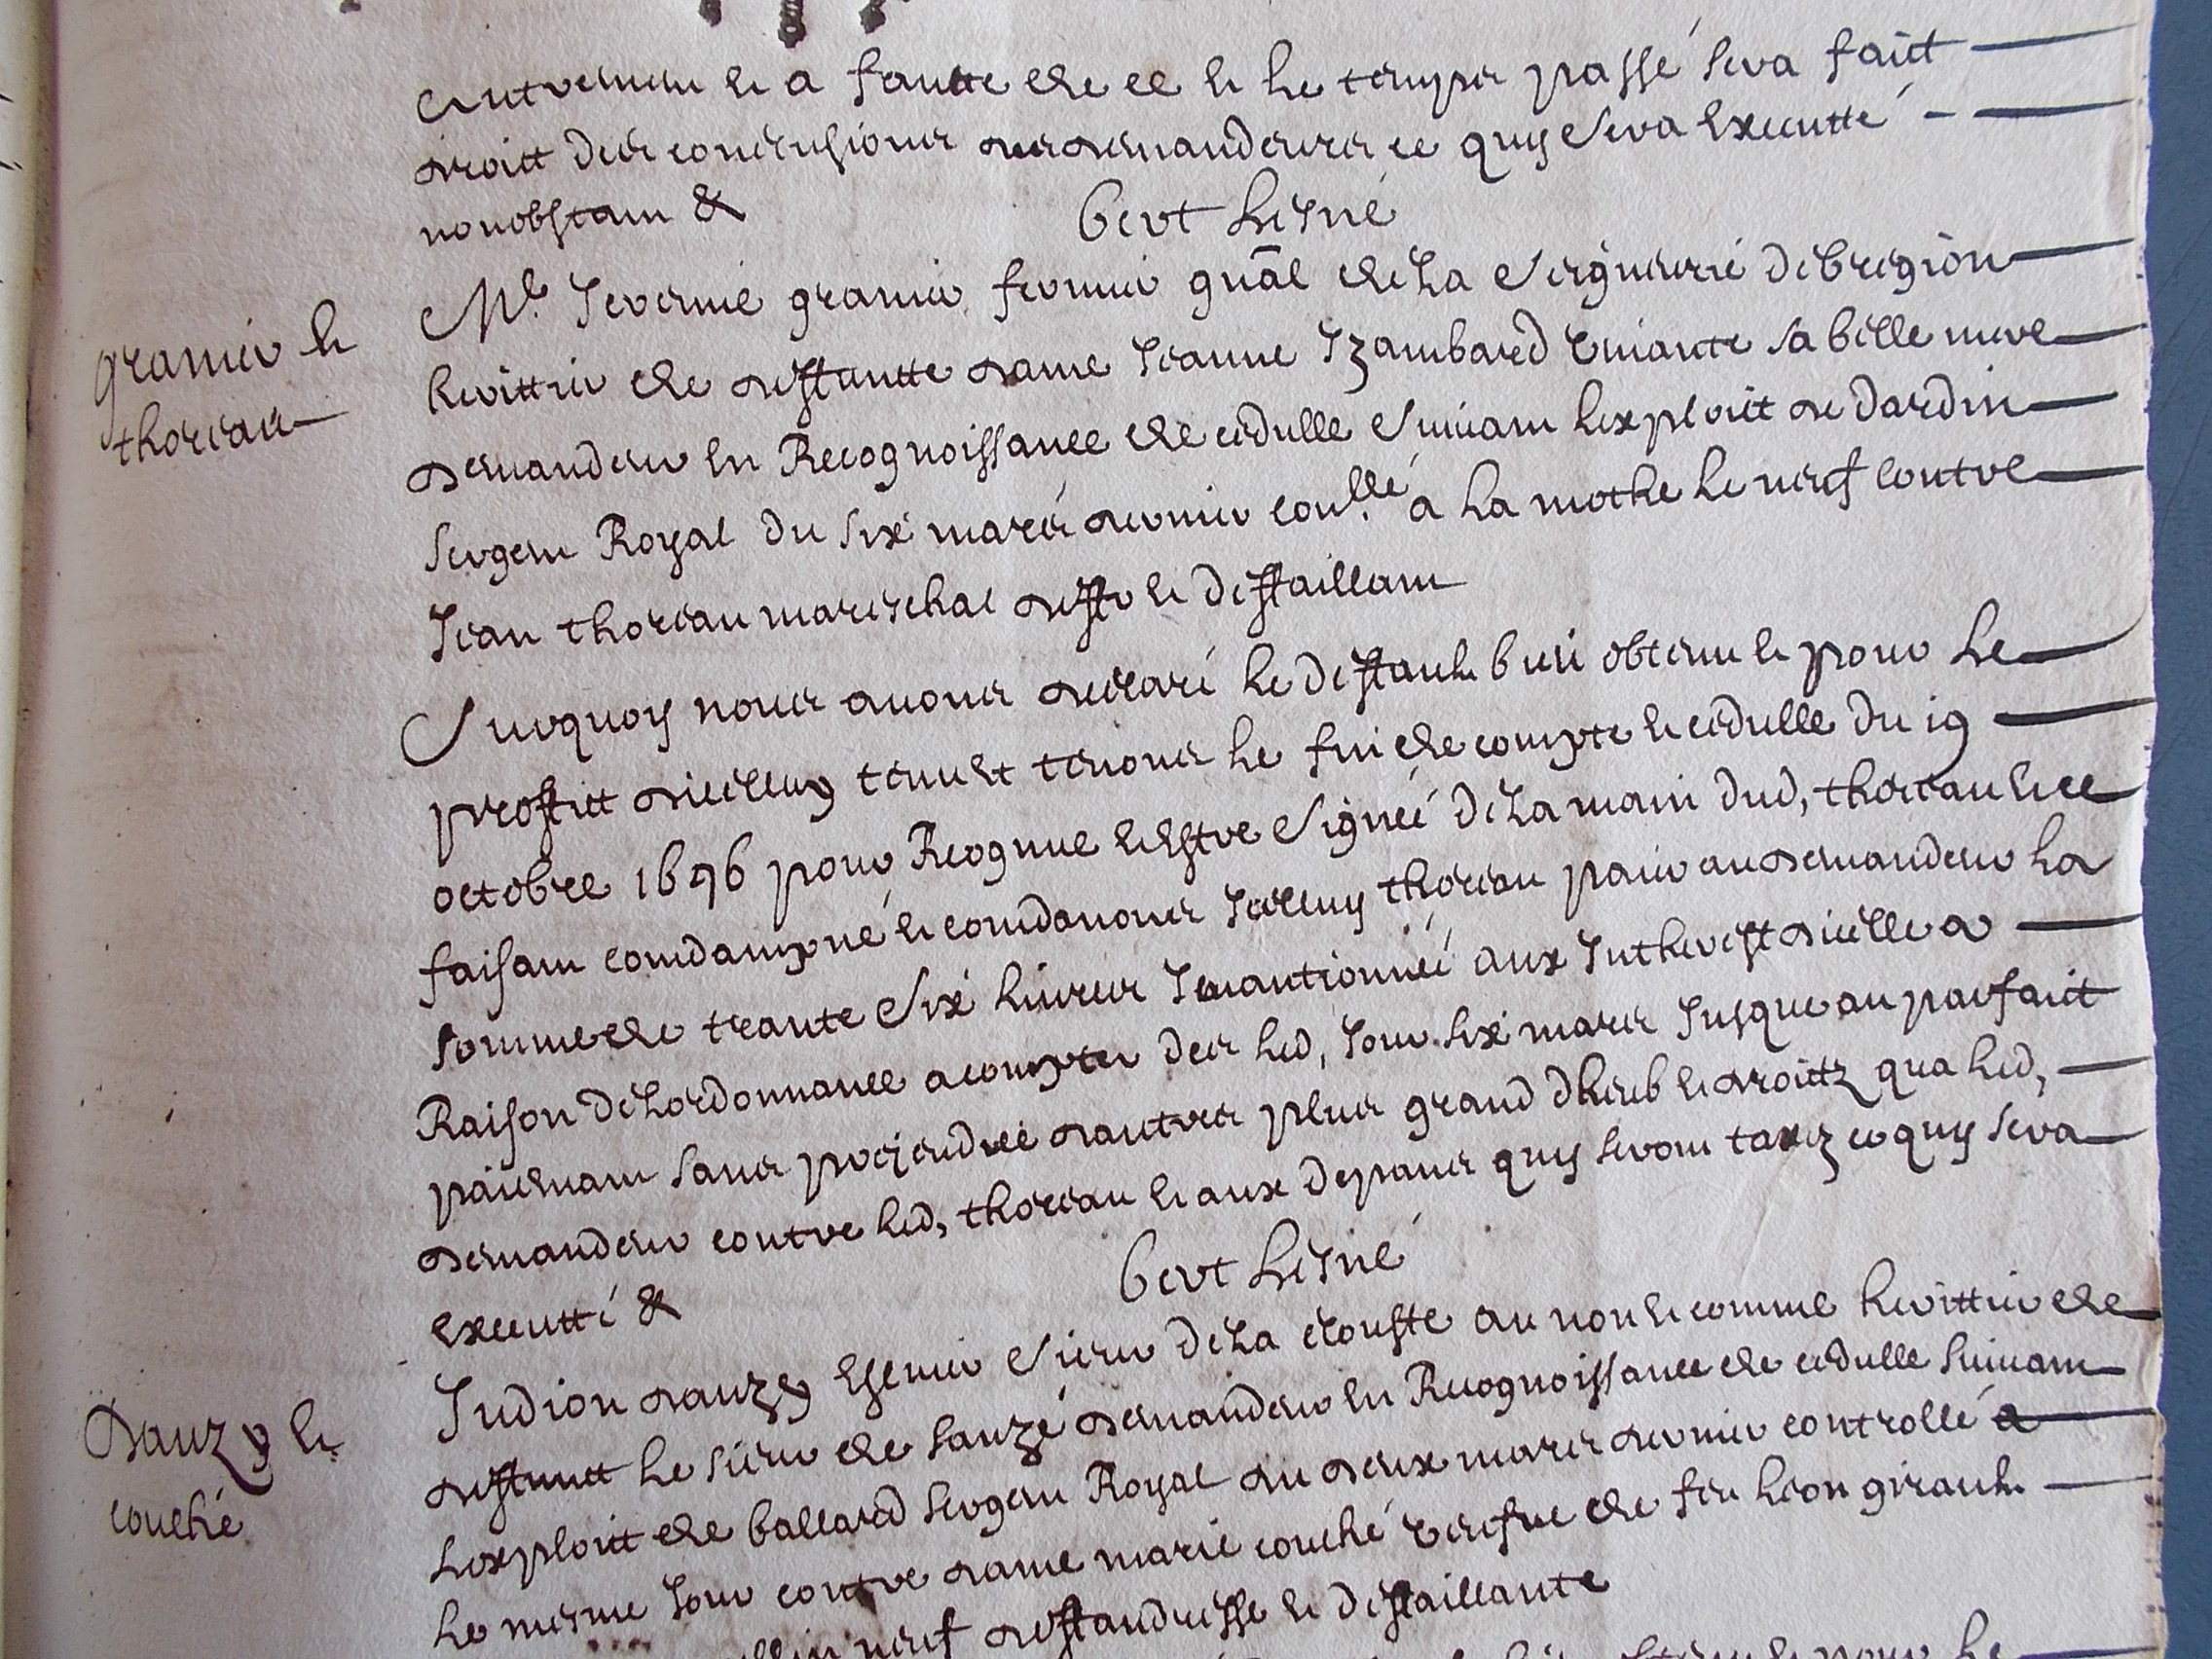 et a faute de ce et le temps passé sera faict
droict des conclusions aux demandeurs ce quy sera executté
nonobstant &
Bert Lesné
granier et
thoreau
Me. Jeremie granier fermier gnāl de la Seigneurie de bregion
herittier de deffuntte dame Jeanne Izambard vivante sa belle mere
demandeur en Recognoissance de cedulle suivant lexploict de dardin
sergent Royal du six mars dernier conllé. a la mothe le neuf contre
Jean thoreau mareschal deffr et deffaillant
Surquoy nous avons declaré le deffault bien obtenu et pour le
proffict dicelluy tenu et tenons le fin de compte et cedulle du 19
octobre 1696 pour Recognue et estre signée de la main dud, thoreau et ce
faisant comdampné et comdanons Icelluy thoreau paier au demandeur la
somme de trante six livres Imantionnée aux Intherest dicelle a
Raison de Lordonnance a compter des led, Jour six mars Jusque au parfaict
paiemant sans prejeudice dautres plus grand dheub et droittz qua led,
demandeur contre led, thoreau et aux depans quy seront taxez ce quy sera
executté &
Bert Lesné
Dauzy et
couché
Judion dauzy Escuier Sieur de La couste au non et comme herittier de
deffunct le sieur de sauzé demandeur en Recognoissance de cedulle suivant
lexploict de ballard sergent Royal du deux mars dernier controllé a
le mesme Jour contre dame marie couché vesfue de feu leon girault
neuf deffandresse et deffaillante